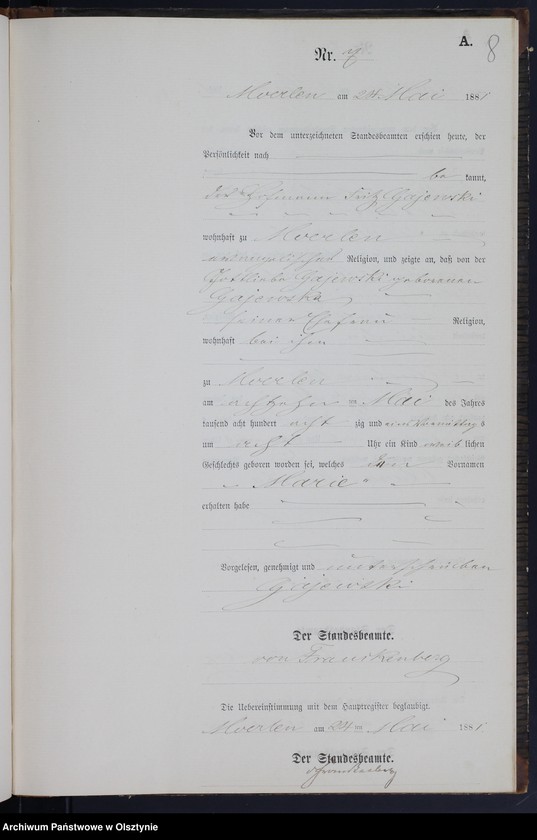 A.
8
Nr.
Moerlen am 24 Mai 1881
Vor dem unterzeichneten Standesbeamten erschien heute, der
Persönlichkeit nach
be kannt,
der Hofmann Fritz Gajewski
wohnhaft zu Moerlen
evangelischer Religion, und zeigte an, daß von der
Gottliebe Gajewski geborenen
Gajewska
seiner Ehefrau Religion,
wohnhaft bei ihm
zu Moerlen
am achtzehn ten Mai des Jahres
tausend acht hundert acht zig und eins Vormittags
um acht Uhr ein Kind weib lichen
Geschlechts geboren worden sei, welches den Vornamen
„Marie“
erhalten habe
Vorgelesen, genehmigt und unterschrieben
Gajewski
Der Standesbeamte.
von Franckenberg
Die Uebereinstimmung mit dem Hauptregister beglaubigt.
Moerlen am 24 ten Mai 1881
Der Standesbeamte.
v Franckenberg
Archiwum Państwowe w Olsztynie